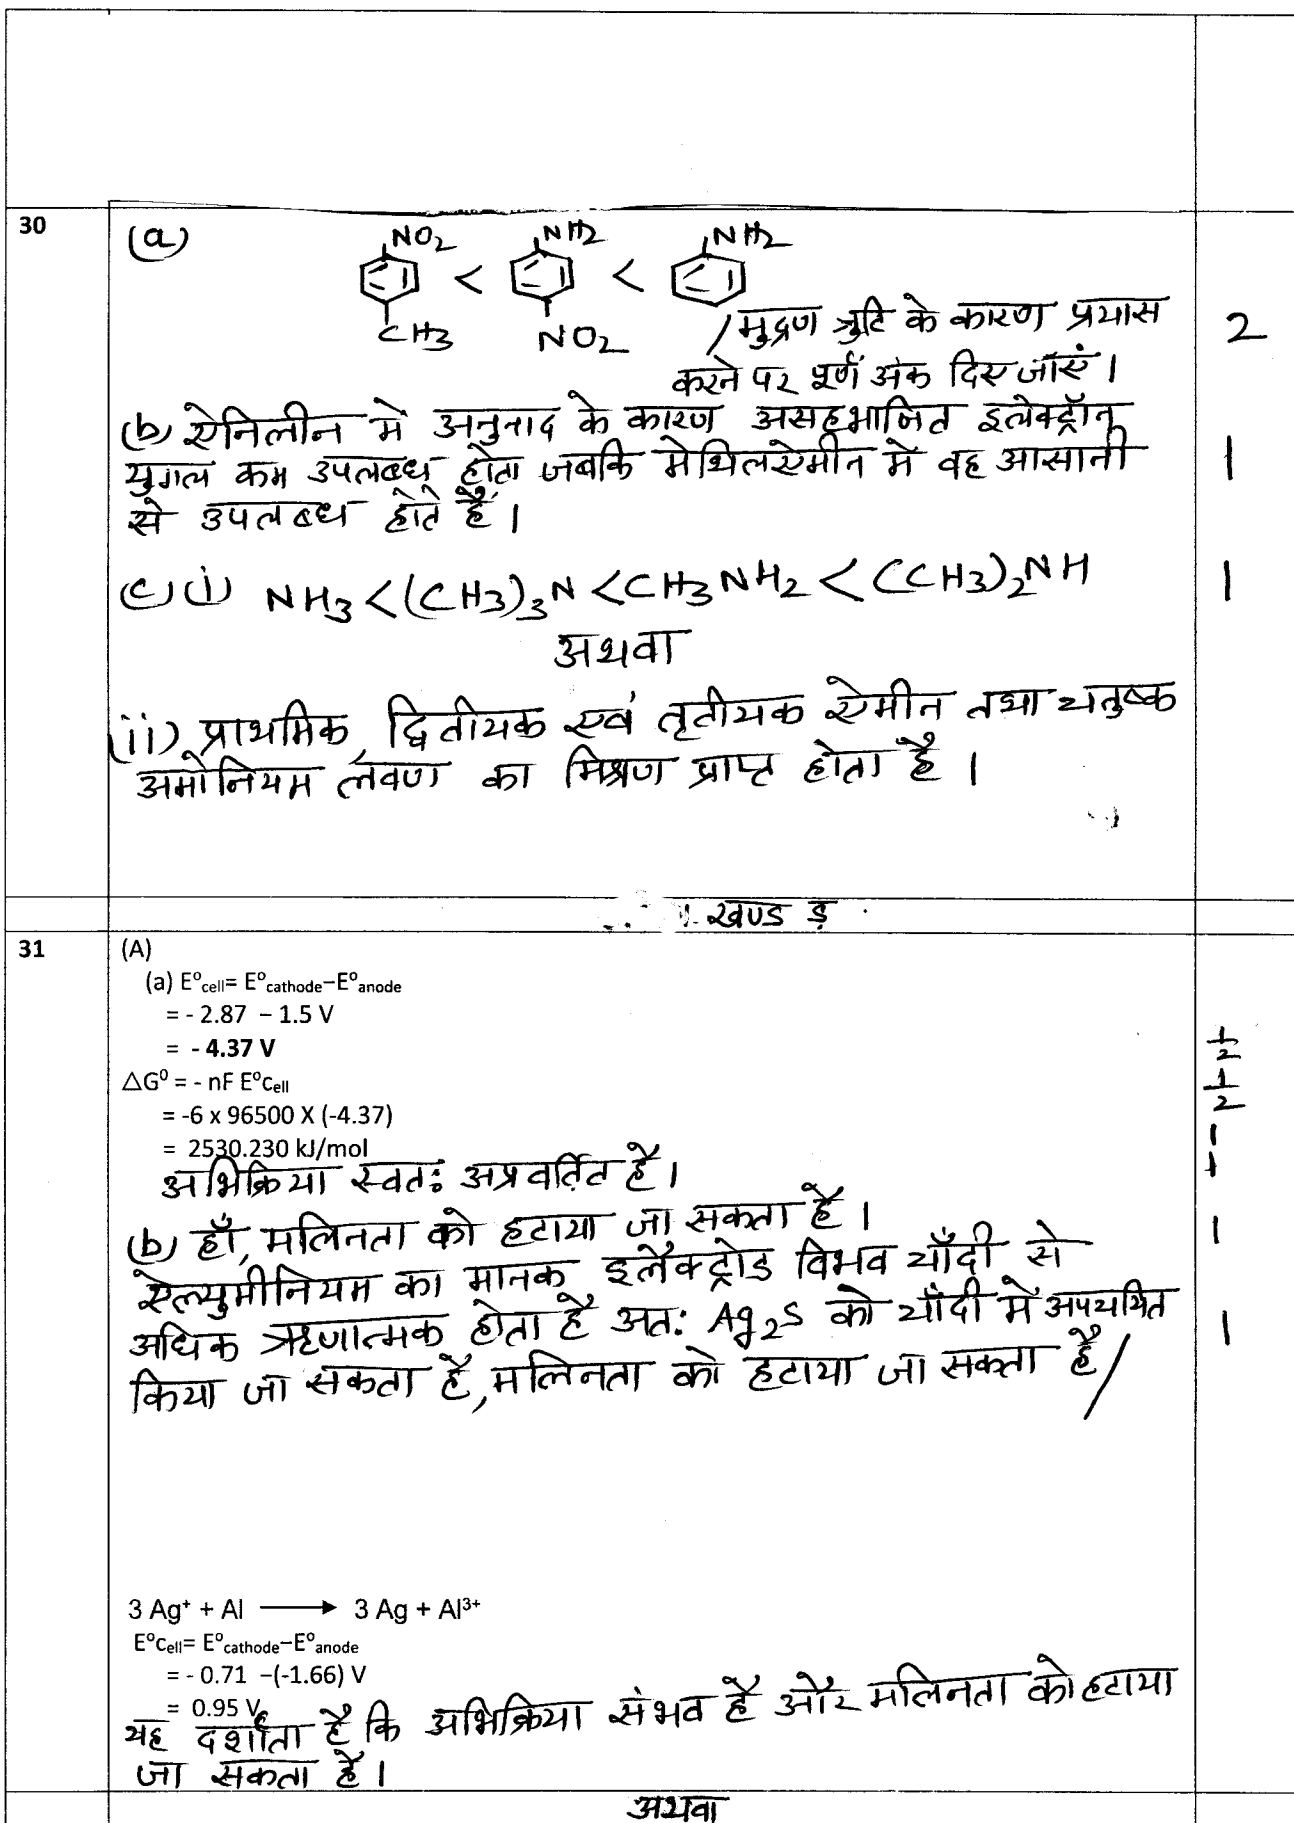 30
(a)
NO2 NH2 NH2
< <
CH3 NO2
/ मुद्रण त्रुटि के कारण प्रयास 2
करने पर पूर्ण अंक दिए जाएं ।
(b) ऐनिलीन में अनुनाद के कारण असहभाजित इलेक्ट्रॉन
युगल कम उपलब्ध होता जबकि मेथिलऐमीन में वह आसानी 1
से उपलब्ध होते हैं ।
(c) (i) NH3 < (CH3)3N < CH3NH2 < (CH3)2NH 1
अथवा
(ii) प्राथमिक, द्वितीयक एवं तृतीयक ऐमीन तथा चतुष्क
अमोनियम लवण का मिश्रण प्राप्त होता है ।
खण्ड ड़
31 (A)
(a) E⁰cell= E⁰cathode−E⁰anode
= - 2.87 − 1.5 V
= - 4.37 V 1/2
△G⁰ = - nF E⁰Cell 1/2
= -6 x 96500 X (-4.37)
= 2530.230 kJ/mol 1
अभिक्रिया स्वतः अप्रवर्तित है । 1
(b) हाँ, मलिनता को हटाया जा सकता है । 1
ऐल्युमीनियम का मानक इलैक्ट्रोड विभव चाँदी से
अधिक ऋणात्मक होता है अत: Ag2S को चाँदी में अपचयित 1
किया जा सकता है, मलिनता को हटाया जा सकता है /
3 Ag⁺ + Al ⟶ 3 Ag + Al³⁺
E⁰Cell= E⁰cathode−E⁰anode
= - 0.71 −(-1.66) V
= 0.95 V
यह दर्शाता है कि अभिक्रिया संभव है और मलिनता को हटाया
जा सकता है ।
अथवा